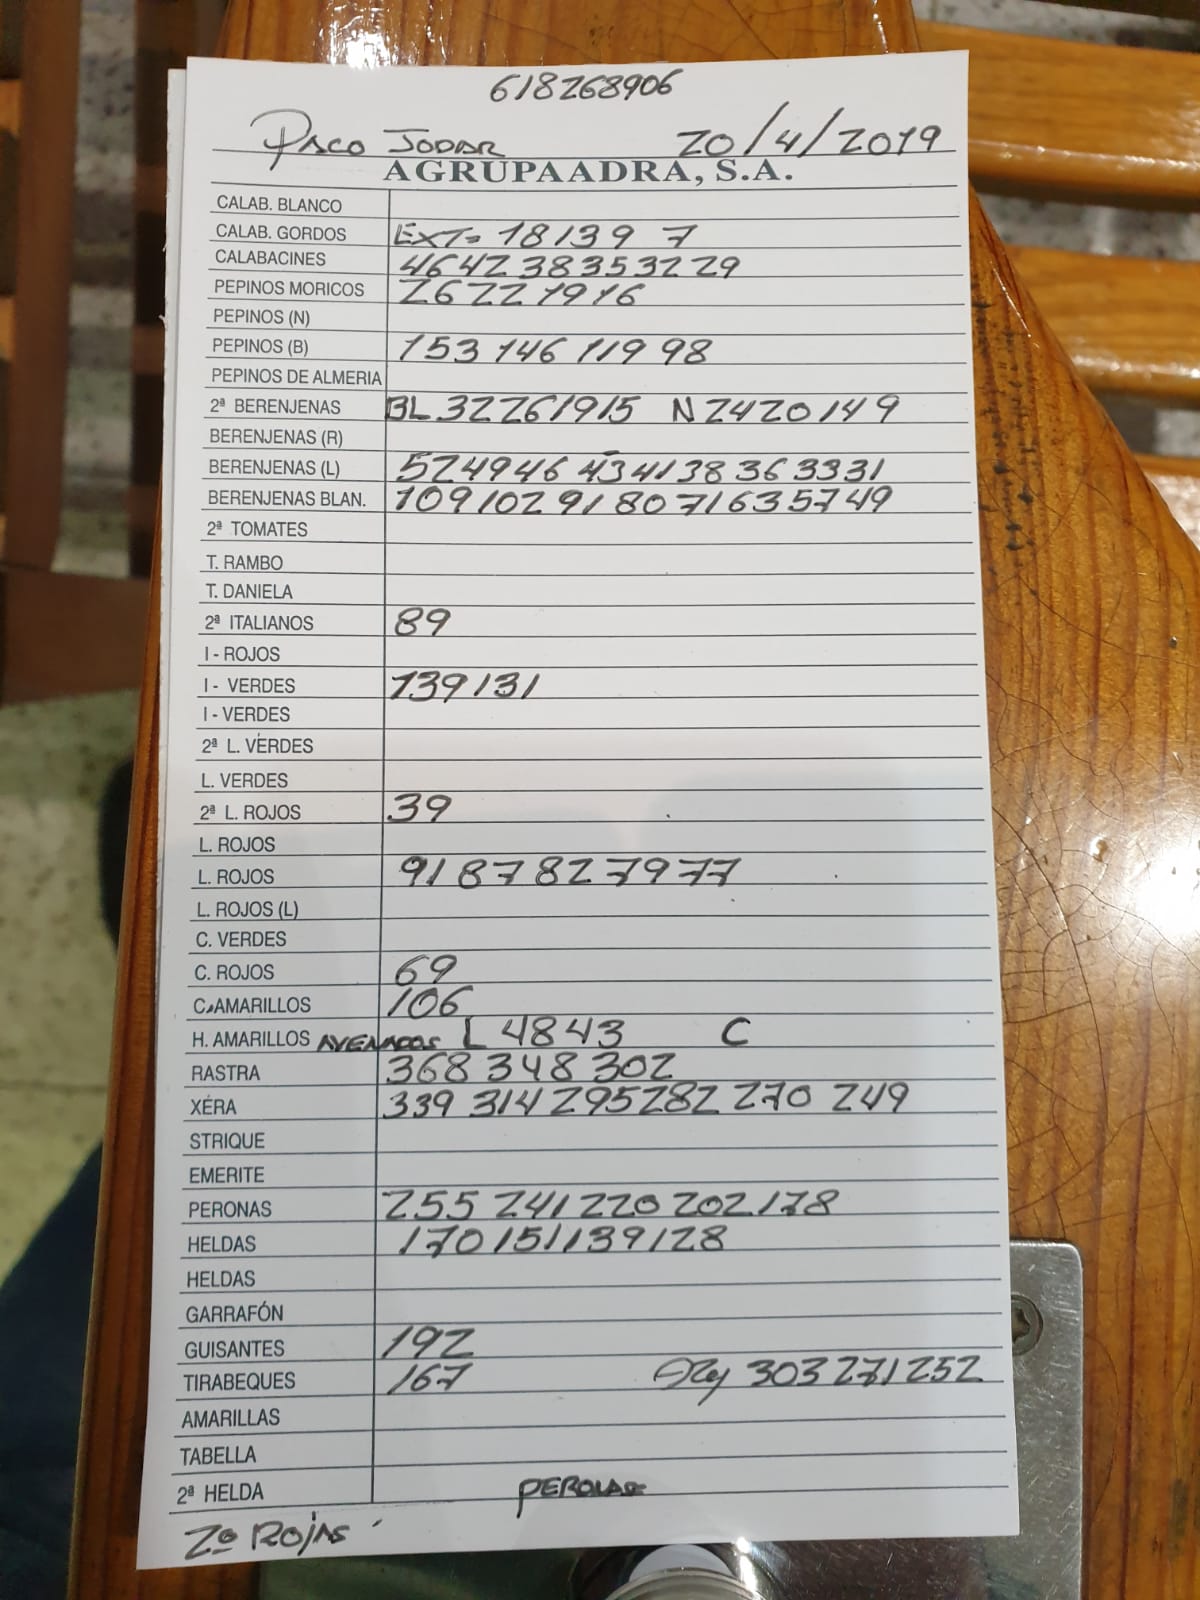 618268906
PACO JODAR 20/4/2019
AGRUPAADRA, S.A.
CALAB. BLANCO
CALAB. GORDOS EXT= 18 13 9 7
CALABACINES 46 42 38 35 32 29
PEPINOS MORICOS 26 22 19 16
PEPINOS (N)
PEPINOS (B) 153 146 119 98
PEPINOS DE ALMERIA
2ª BERENJENAS BL 32 26 19 15 N 24 20 14 9
BERENJENAS (R)
BERENJENAS (L) 52 49 46 43 41 38 36 33 31
BERENJENAS BLAN. 109 102 91 80 71 63 57 49
2ª TOMATES
T. RAMBO
T. DANIELA
2ª ITALIANOS 89
I - ROJOS
I - VERDES 139 131
I - VERDES
2ª L. VERDES
L. VERDES
2ª L. ROJOS 39
L. ROJOS
L. ROJOS 91 87 82 79 77
L. ROJOS (L)
C. VERDES
C. ROJOS 69
C. AMARILLOS 106
H. AMARILLOS AVENADOS L 48 43 C
RASTRA 368 348 302
XÉRA 339 314 295 282 270 249
STRIQUE
EMERITE
PERONAS 255 241 220 202 178
HELDAS 170 151 139 128
HELDAS
GARRAFÓN
GUISANTES 192
TIRABEQUES 167 303 271 252
AMARILLAS
TABELLA
2ª HELDA
2ª ROJAS